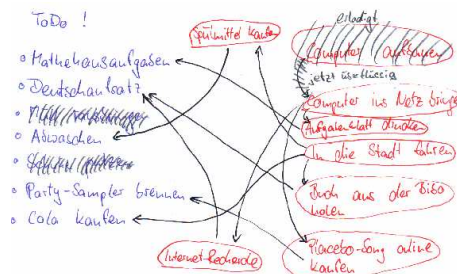 ToDo !
• Mathehausaufgaben
• Deutschaufsatz
• Abwaschen
• Party-Sampler brennen
• Cola kaufen
Spülmittel kaufen
Internet-Recherche
erledigt
Computer aufräumen
jetzt überflüssig
Computer ins Netz bringen
Aufgabenblatt drucken
In die Stadt fahren
Buch aus der Bibo
holen
Placebo-Song online
kaufen